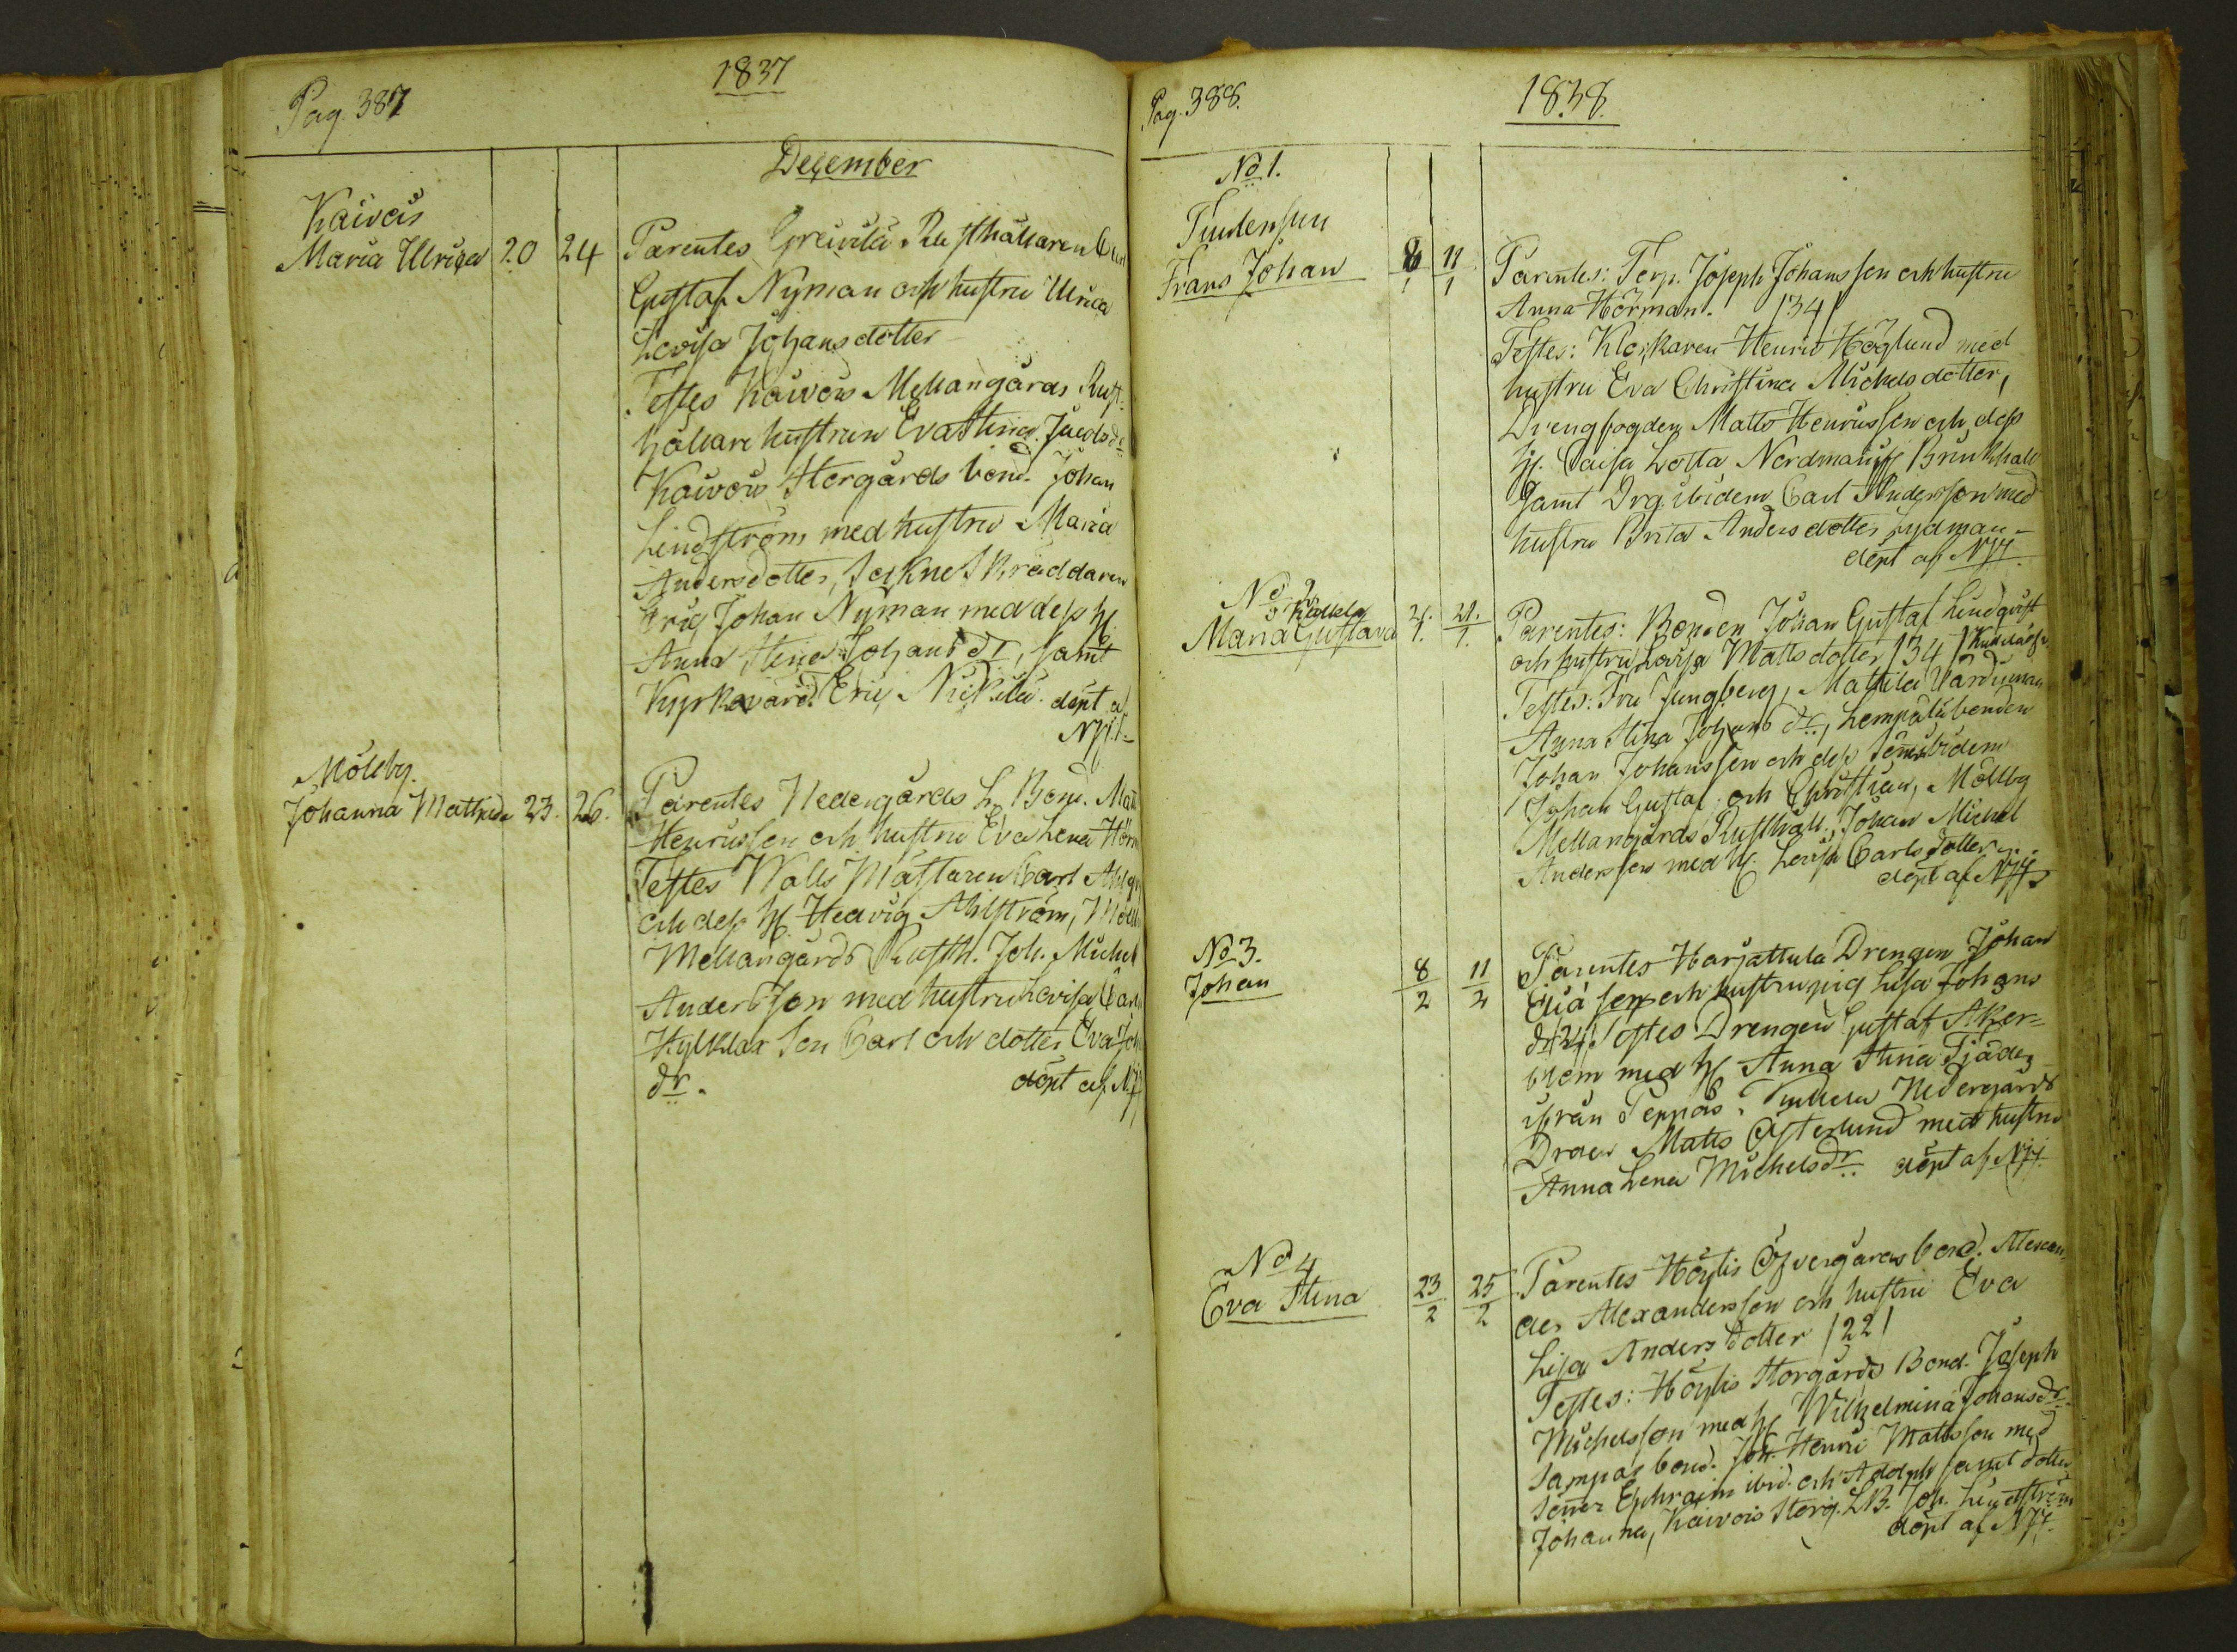 Pag. 387
1837
December
Kaivois
Maria Ulrica 20 24 Parentes Greivilä Rusthållaren Carl
Gustaf Nyman och hustru Ulrica
Lovisa Johansdotter
Testes Kaivois Mellangårds Rust-
hållare hustrun Eva Stina Jacobsdr
Kaivois Storgårds bond. Johan
Lindström med hustru Maria
Andersdotter, Sockne Skräddaren
Eric Johan Nyman med dess H.
Anna Stina Johansdr, samt
Kyrkovärd. Eric Nickilä. döpt af
Njj.
Mölby.
Johanna Mathilda 23. 26. Parentes Nedergårds L. Bond. Matts
Henricsson och hustru Eva Lena
Testes Walls Mästaren Carl
och dess H. Hedvig Ahlström,
Mellangårds Rusth. Joh. Michel
Andersson med hustru Lovisa
son Carl och dotter Eva
dr. döpt af Njj
Pag. 388.
1838.
No 1.
Frans Johan 8/1 11/1 Parentes: Torp. Joseph Johansson och hustru
Anna Hörman. /34/
Testes: Klockaren Henric Höglund med
hustru Eva Christina Michelsdotter,
Drengfogden Matts Henricsson och dess
H. Caisa Lotta Nordman Brinkhall
samt Drg. ibidem Carl Andersson med
hustru Brita Andersdotter Sydman
döpt af Njj.
No 2.
Maria Gustava 21/1. 21/1. Parentes: Bonden Johan Gustaf Lindqvist
och hustru Lovisa Mattsdotter /34/
Testes: Fru Ljungberg, Mattila
Anna Stina Johansdr., Lempälä bonden
Johan Johansson och dess söner ibidem
Johan Gustaf och Christian, Mölby
Mellangårds Rusthåll. Johan Michel
Andersson med H. Lovisa Carlsdotter
döpt af Njj
No 3.
Johan 8/2 11/2 Parentes Harjattula Drengen Johan
Eliasson och hustru pig Lisa Johans
dr /24/ Testes Drengen Gustaf Åker-
blom med H. Anna Stina Tjäder
ifrån Pepnäs. Nedergårds
Matts Österlund med hustru
Anna Lena Michelsdr. döpt af Njj.
No 4
Eva Stina 23/2 25/2 Parentes Höylis Öfvergårds bond. Alexan-
der Alexandersson och hustru Eva
Lisa Andersdotter /22/
Testes: Höylis Storgårds Bond. Joseph
Michelsson med H. Wilhelmina Johansdr
Sampais bond. Joh. Henric Mattsson med
söner Ephraim ibid. och Adolph samt dotter
Johanna, Kaivois Storg. LB. Joh. Lindström
döpt af Njj.